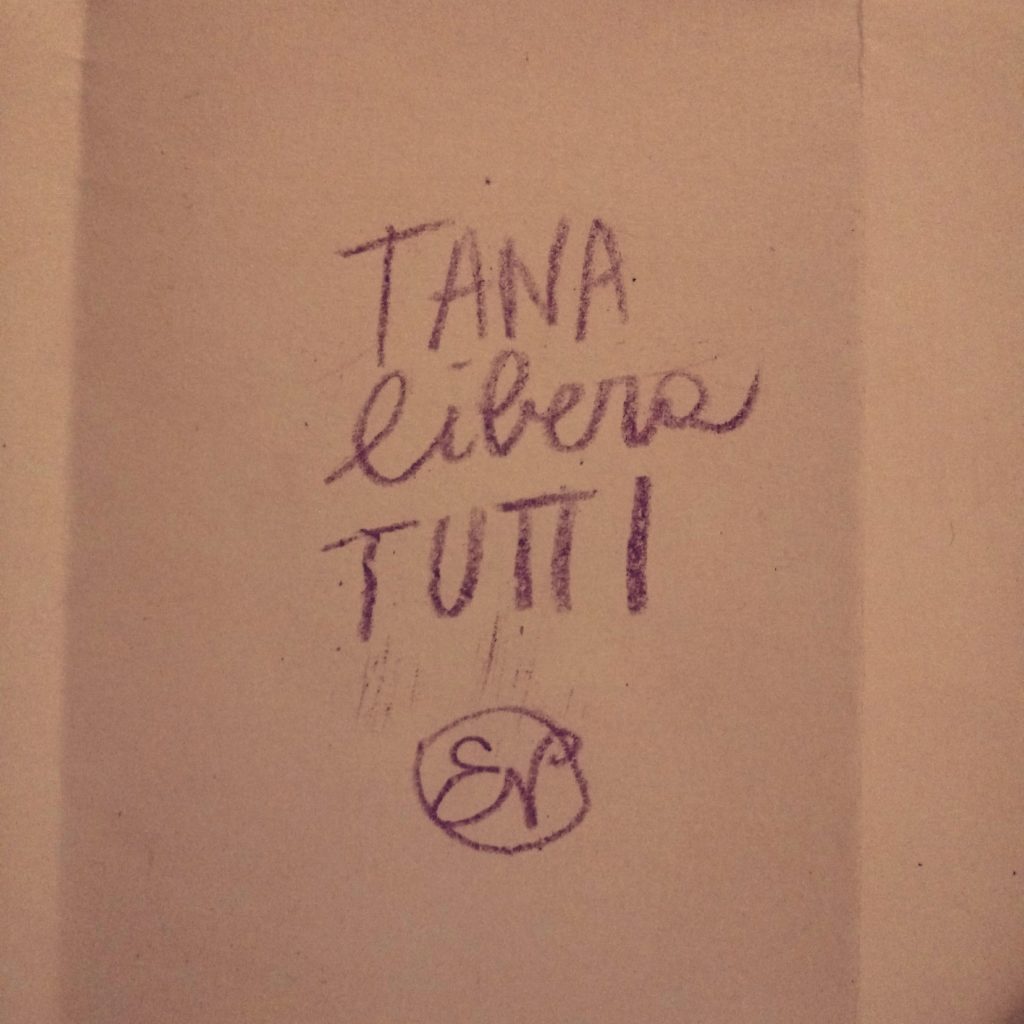 TANA
libera
TUTTI